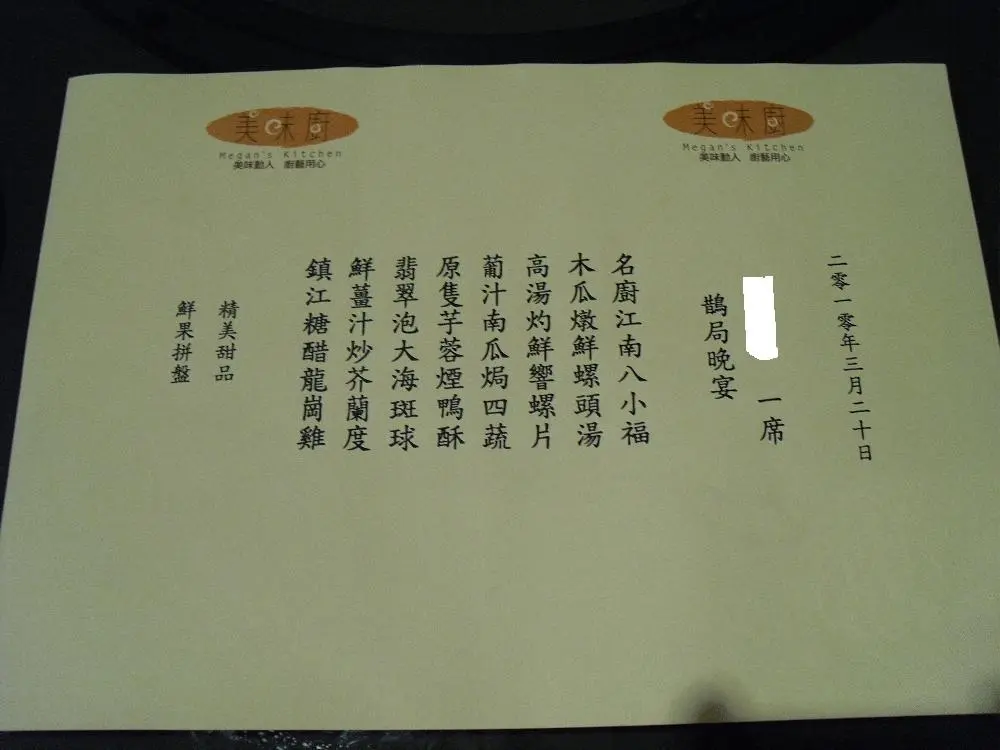 美味廚
Megan's Kitchen
美味動人 廚藝用心
美味廚
Megan's Kitchen
美味動人 廚藝用心
二零一零年三月二十日
一席
鵲局晚宴
名廚江南八小福
木瓜燉鮮螺頭湯
高湯灼鮮響螺片
葡汁南瓜焗四蔬
原隻芋蓉煙鴨酥
翡翠泡大海斑球
鮮薑汁炒芥蘭度
鎮江糖醋龍崗雞
精美甜品
鮮果拼盤